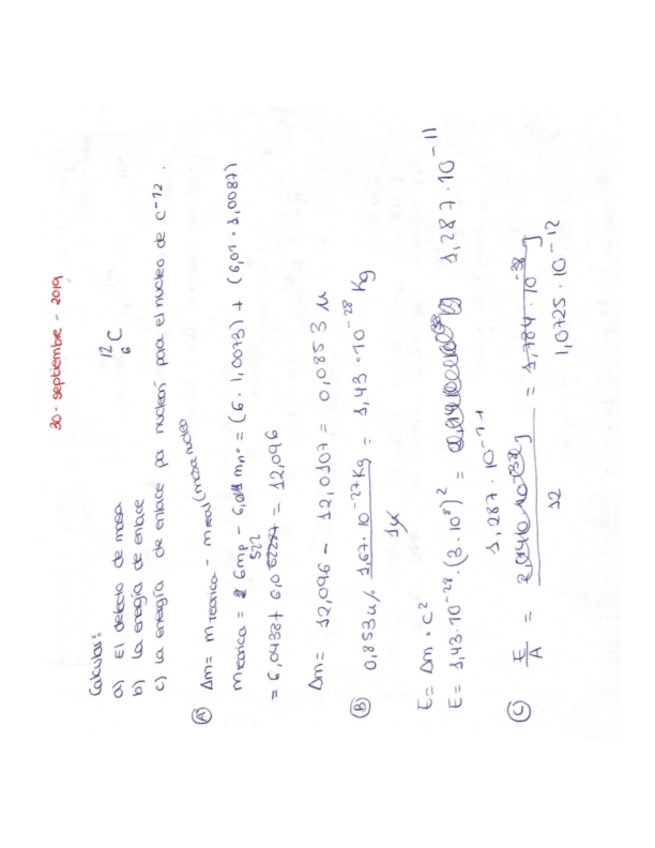 30 - septiembre - 2019
Calcular: ¹²₆C
a) El defecto de masa
b) La energía de enlace
c) La energía de enlace pa nucleón para el nucleo de C-12.
A) Δm = m teorica - m real (masa nucleo)
m teorica = 6mp - 6,01 mn = (6 · 1,0073) + (6,01 · 1,0087)
= 6,0438 + 6,0522 = 12,096
Δm = 12,096 - 12,0107 = 0,0853 u
B) 0,853u/· 1,67·10⁻²⁷Kg / 1u = 1,43 · 10⁻²⁸ Kg
E = Δm · c²
E = 1,43·10⁻²⁸ · (3·10⁸)² = 1,287·10⁻¹¹
1,287·10⁻¹¹
C) E/A = / 12 = 1,784·10⁻³⁸ J
1,0725·10⁻¹²